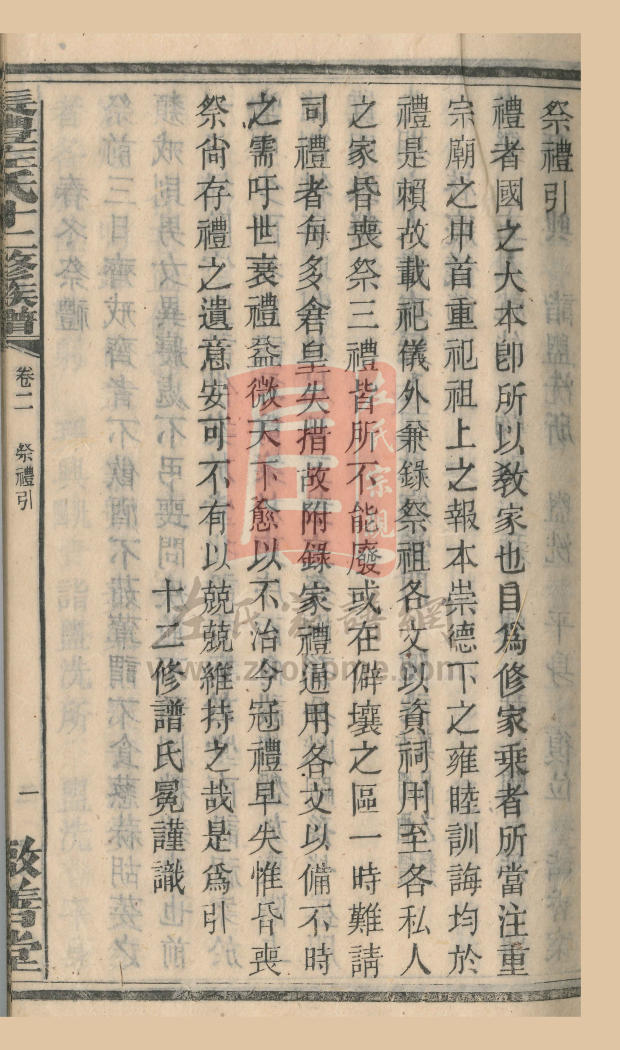 祭禮引
禮者國之大本卽所以敎家也自爲修家乘者所當注重
宗廟之中首重祀祖上之報本崇德下之雍睦訓誨均於
禮是賴故載祀儀外兼錄祭祖各文以資祠用至各私人
之家昏喪祭三禮皆所不能廢或在僻壤之區一時難請
司禮者每多倉皇失措故附錄家禮通用各文以備不時
之需吁世衰禮益微天下愈以不治今冠禮早失惟昏喪
祭尙存禮之遺意安可不有以兢兢維持之哉是爲引
十二修譜氏冕謹識
長豐左氏十二修族譜
卷二
祭禮引
一
敬善堂
左氏宗親
左氏宗譜網